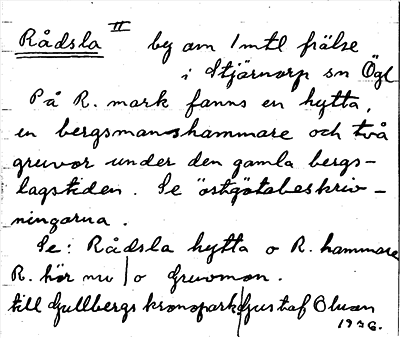 Rådsla II by om 1 mtl frälse
i Stjärnorp sn Ögl
På R. mark fanns en hytta,
en bergsmanshammare och två
gruvor under den gamla bergs-
lagstiden. Se östgötabeskriv-
ningarna.
Se: Rådsla hytta o R. hammare
R. hör nu / o Gruvmon.
till Gullbergs kronopark / Gustaf Olsson
1936.